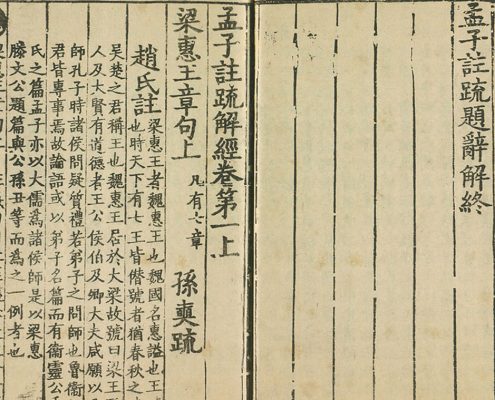 孟子註疏題辭解終
孟子註疏解經卷第一上
梁惠王章句上 凡有七章 孫奭疏
趙氏註 梁惠王者魏惠王也魏國名惠謚也王
也時天下有七王皆僣號者猶春秋之
吳楚之君稱王也魏惠王居於大梁故號曰梁王
人及大賢有道德者王公侯伯及卿大夫咸願以
師孔子時諸侯問疑質禮若弟子之問師也魯衛
君皆專事焉故論語或以弟子名篇而有衛靈公
氏之篇孟子亦以大儒爲諸侯師是以梁惠
滕文公題篇與公孫丑等而爲之一例者也